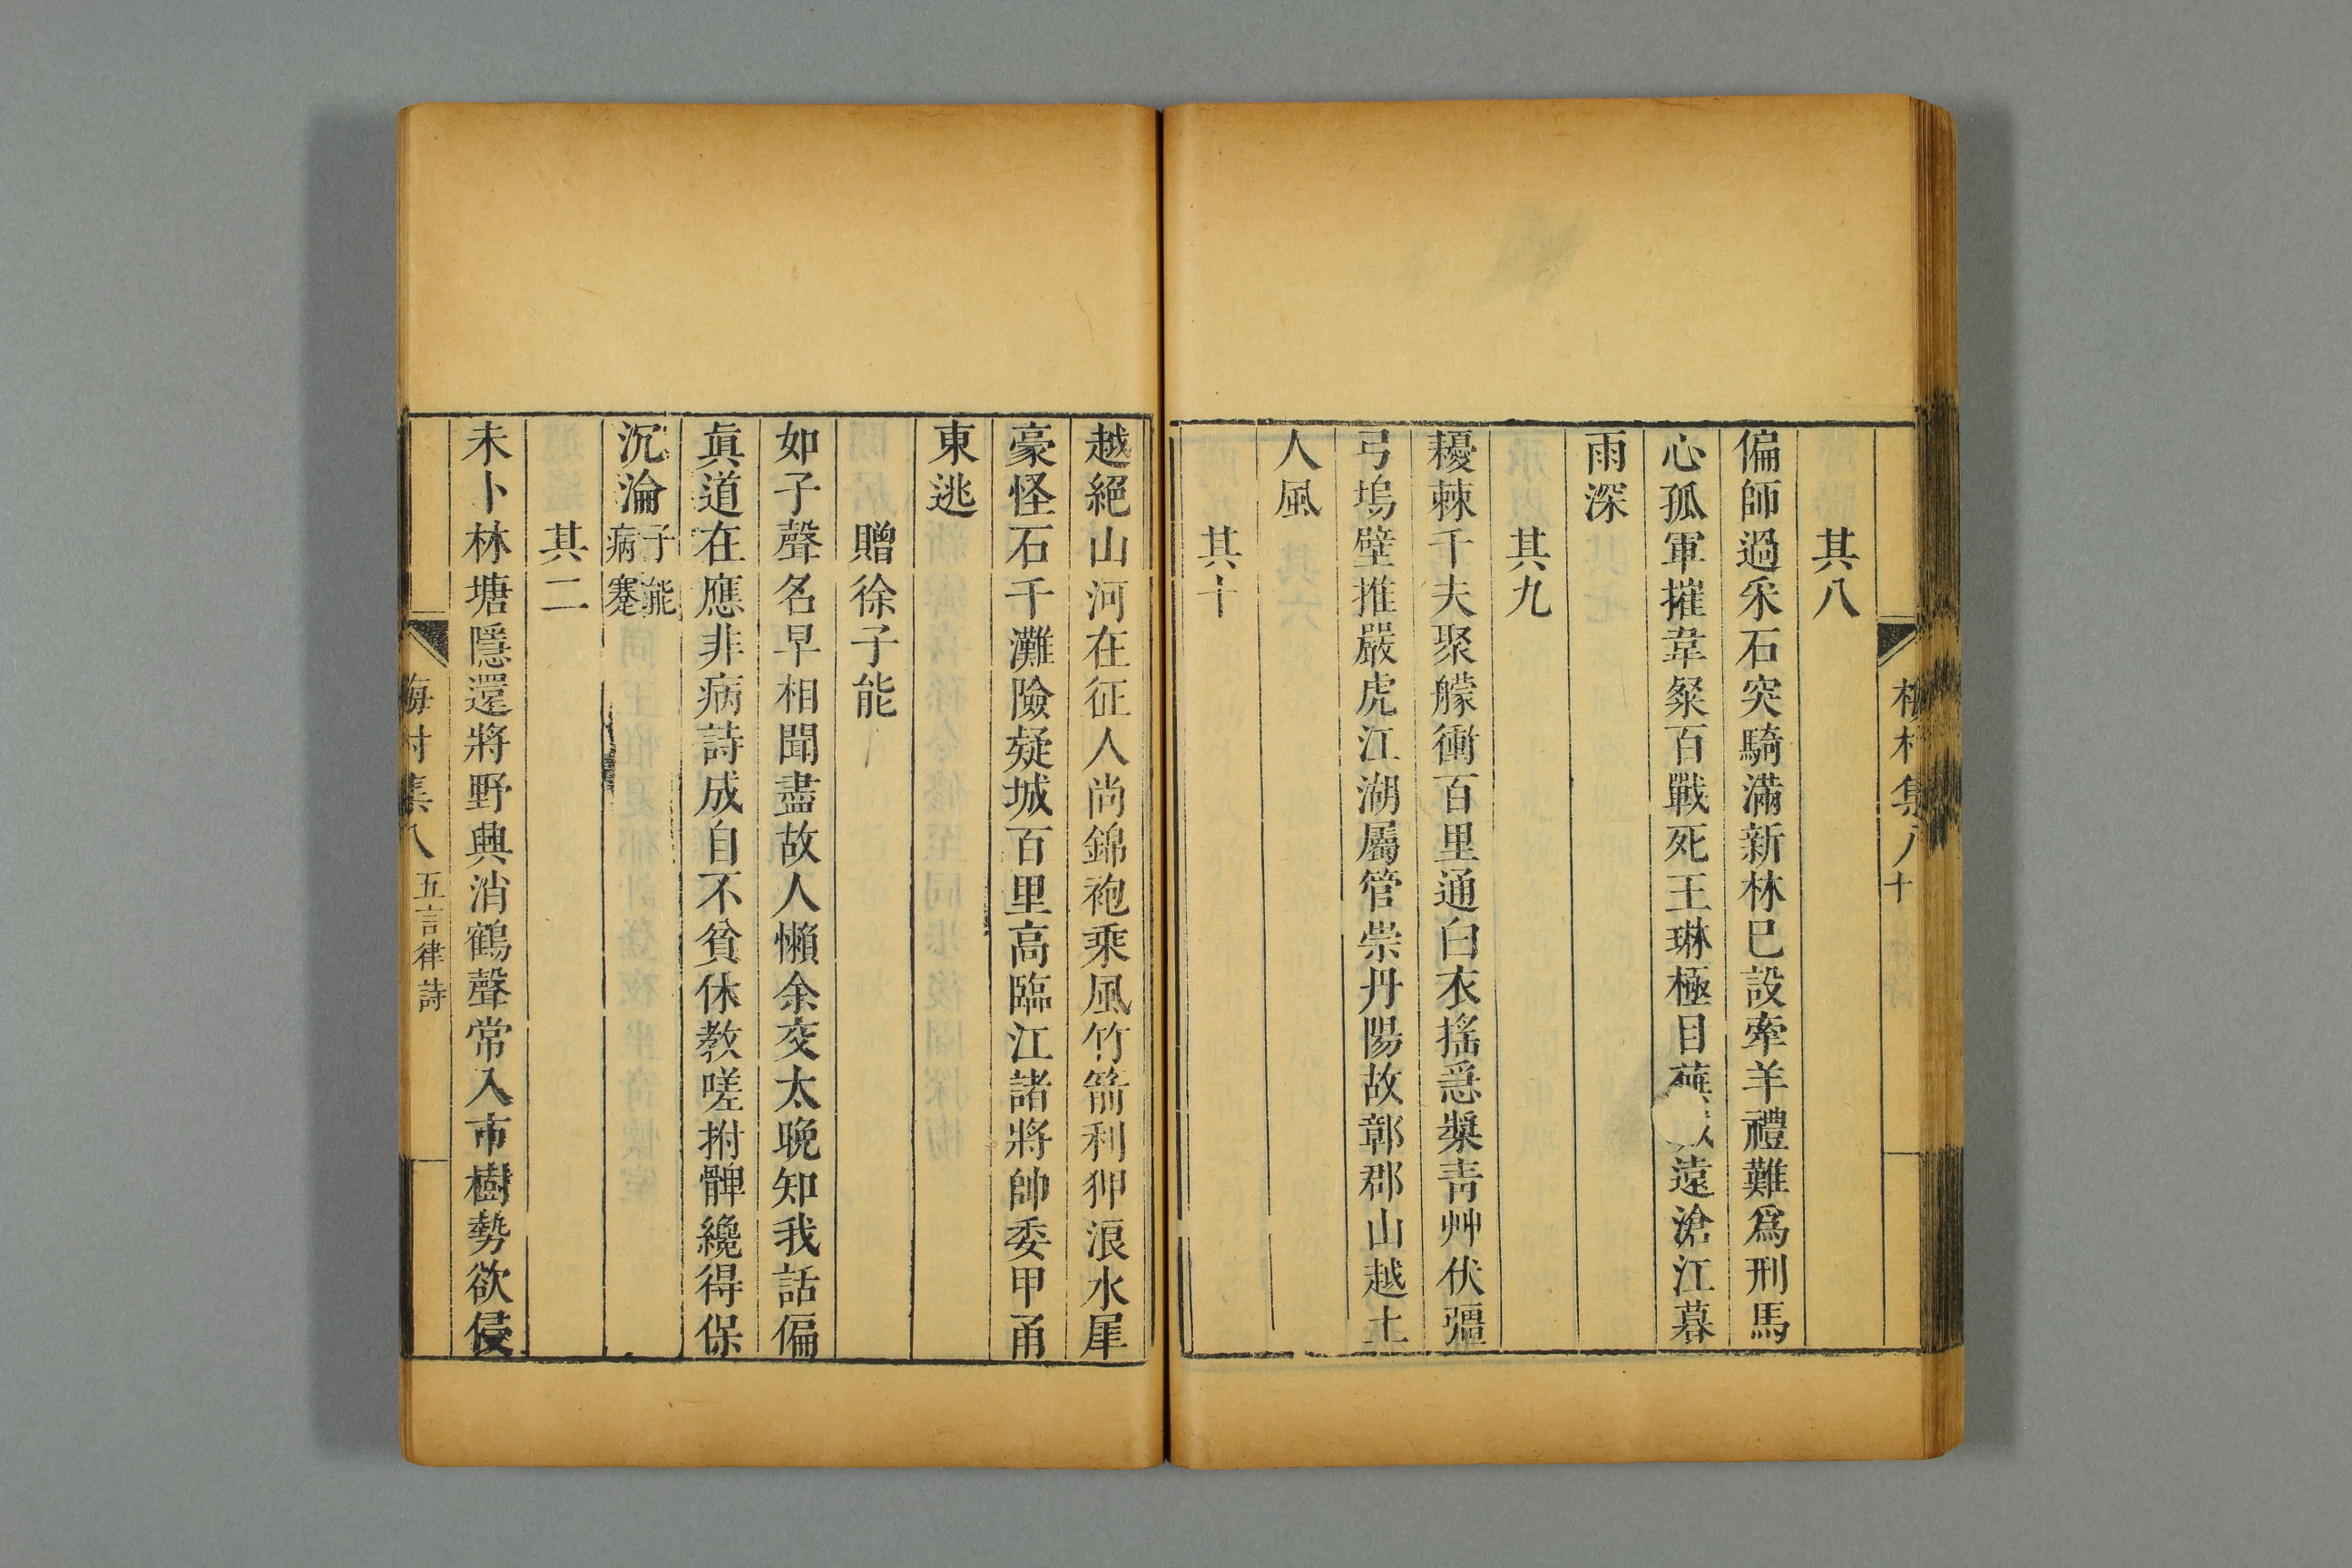 梅村集八 十
其八
偏師過采石突騎滿新林已設牽羊禮難爲刑馬
心孤軍摧韋粲百戰死王琳極目蕪 遠滄江暮
雨深
其九
耰棘千夫聚艨衝百里通白衣搖急槳靑艸伏彊
弓塢壁推嚴虎江湖屬管崇丹陽故鄣郡山越土
人風
其十
越絕山河在征人尚錦袍乘風竹箭利狎浪水犀
豪怪石千灘險疑城百里高臨江諸將帥委甲甬
東逃
贈徐子能
如子聲名早相聞盡故人懶余交太晚知我話偏
眞道在應非病詩成自不貧休教嗟拊髀纔得保
沉淪子能病蹇
其二
未卜林塘隱還將野興消鶴聲常入市樹勢欲侵
梅村集八 五言律詩